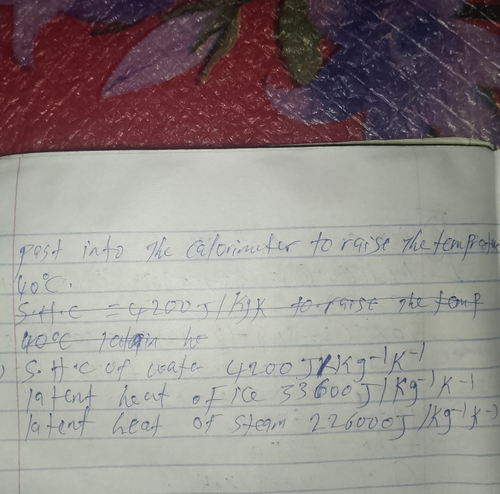 past into the calorimeter to raise the temprature
40°C.
S.H.C = 4200J/kgK to raise the temp
40°C
) S.H.C of water 4200J/kg⁻¹K⁻¹
latent heat of ice 33600J/kg⁻¹K⁻¹
latent heat of steam 226000J/kg⁻¹K⁻¹